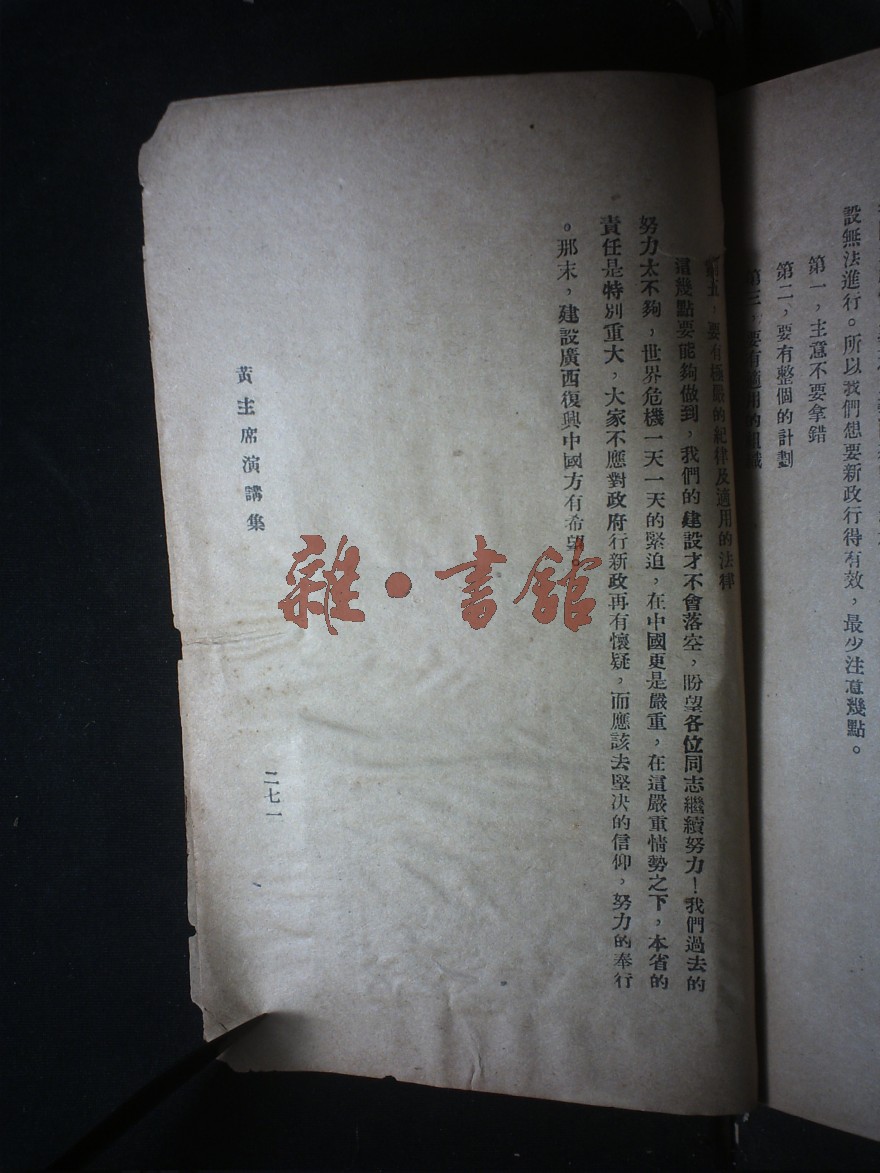 設無法進行。所以我們想要新政行得有效，最少注意幾點。
第一，主意不要拿錯
第二，要有整個的計劃
第三，要有適用的組織
第五，要有極嚴的紀律及適用的法律
這幾點要能夠做到，我們的建設才不會落空，盼望各位同志繼續努力！我們過去的
努力太不夠，世界危機一天一天的緊迫，在中國更是嚴重，在這嚴重情勢之下，本省的
責任是特別重大，大家不應對政府行新政再有懷疑，而應該去堅決的信仰，努力的奉行
。那末，建設廣西復興中國方有希望
黃主席演講集
二七一
雜·書館